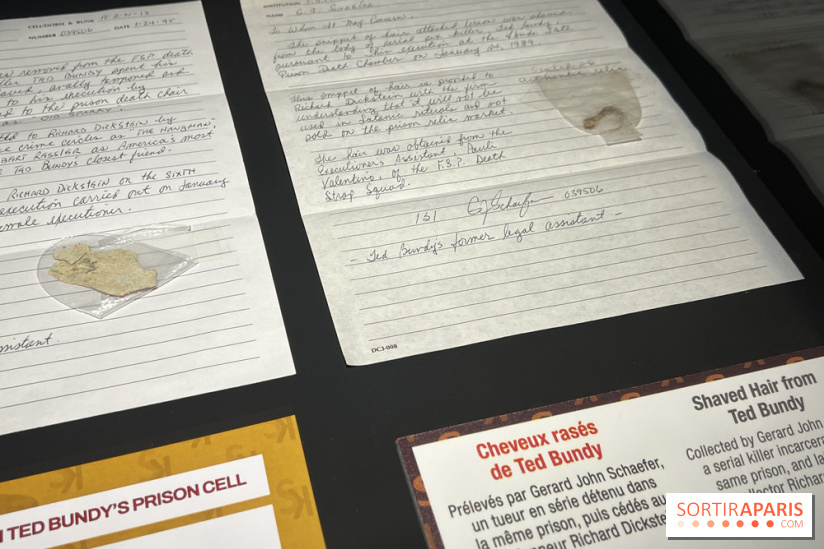 CELL/DORM. & BUNK
NUMBER 039506 DATE 1-24-95
removed from the F.S.P. death
TED BUNDY spent his
orally removed
to his execution by
to the prison death chair
as "OLD SPARKY."
to RICHARD DICKSTEIN by
crime circles as "THE HANGMAN,"
as America's most
TED BUNDY'S closest friend.
RICHARD DICKSTEIN on the sixth
execution carried out on January
female executioner.
assistant.
INSTITUTION
NAME G.J. Schaefer
To Whom It May Concern,
The snippet of hair attached hereon was shaved
from the body of serial sex killer, Ted Bundy
pursuant to his execution at the Florida State
Prison Death Chamber on January 24, 1989.
This snippet of hair is provided to
Richard Dickstein with the firm
understanding that it will not be
used in Satanic rituals and not
sold on the prison relic market.
The hair was obtained from the
Executioner's Assistant, Pauli
Valentino, of the F.S.P. Death
Strap Squad.
151 GJSchaefer 039506
- Ted Bundy's former legal assistant -
DC3-008
TED BUNDY'S PRISON CELL
Cheveux rasés
de Ted Bundy
Prélevés par Gerard John Schaefer,
un tueur en série détenu dans
la même prison, puis cédés au
Richard Dickste
Shaved Hair from
Ted Bundy
Collected by Gerard John
a serial killer incarcera
same prison, and la
Richar
SORTIRAPARIS
.COM